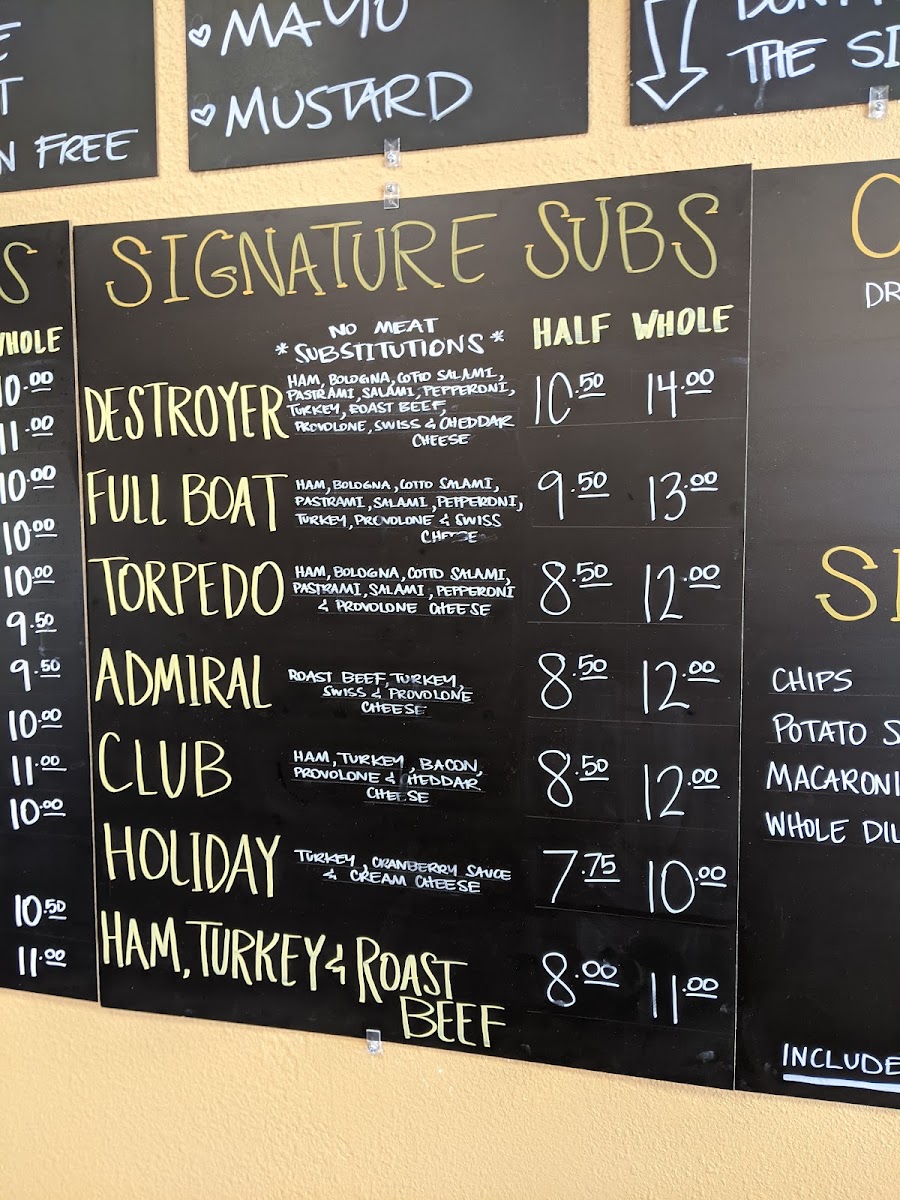 MAYO
MUSTARD
THE
FREE
SIGNATURE SUBS
NO MEAT
*SUBSTITUTIONS*
HALF WHOLE
DESTROYER
HAM, BOLOGNA, COTTO SALAMI,
PASTRAMI, SALAMI, PEPPERONI,
TURKEY, ROAST BEEF,
PROVOLONE, SWISS & CHEDDAR
CHEESE
10.50 14.00
FULL BOAT
HAM, BOLOGNA, COTTO SALAMI,
PASTRAMI, SALAMI, PEPPERONI,
TURKEY, PROVOLONE & SWISS
CHEESE
9.50 13.00
TORPEDO
HAM, BOLOGNA, COTTO SALAMI,
PASTRAMI, SALAMI, PEPPERONI
& PROVOLONE CHEESE
8.50 12.00
ADMIRAL
ROAST BEEF, TURKEY,
SWISS & PROVOLONE
CHEESE
8.50 12.00
CLUB
HAM, TURKEY, BACON,
PROVOLONE & CHEDDAR
CHEESE
8.50 12.00
HOLIDAY
TURKEY, CRANBERRY SAUCE
& CREAM CHEESE
7.75 10.00
HAM, TURKEY & ROAST
BEEF
8.00 11.00
WHOLE
10.00
11.00
10.00
10.00
10.00
9.50
9.50
10.00
11.00
10.00
10.50
11.00
CHIPS
POTATO
MACARONI
WHOLE
INCLUDE